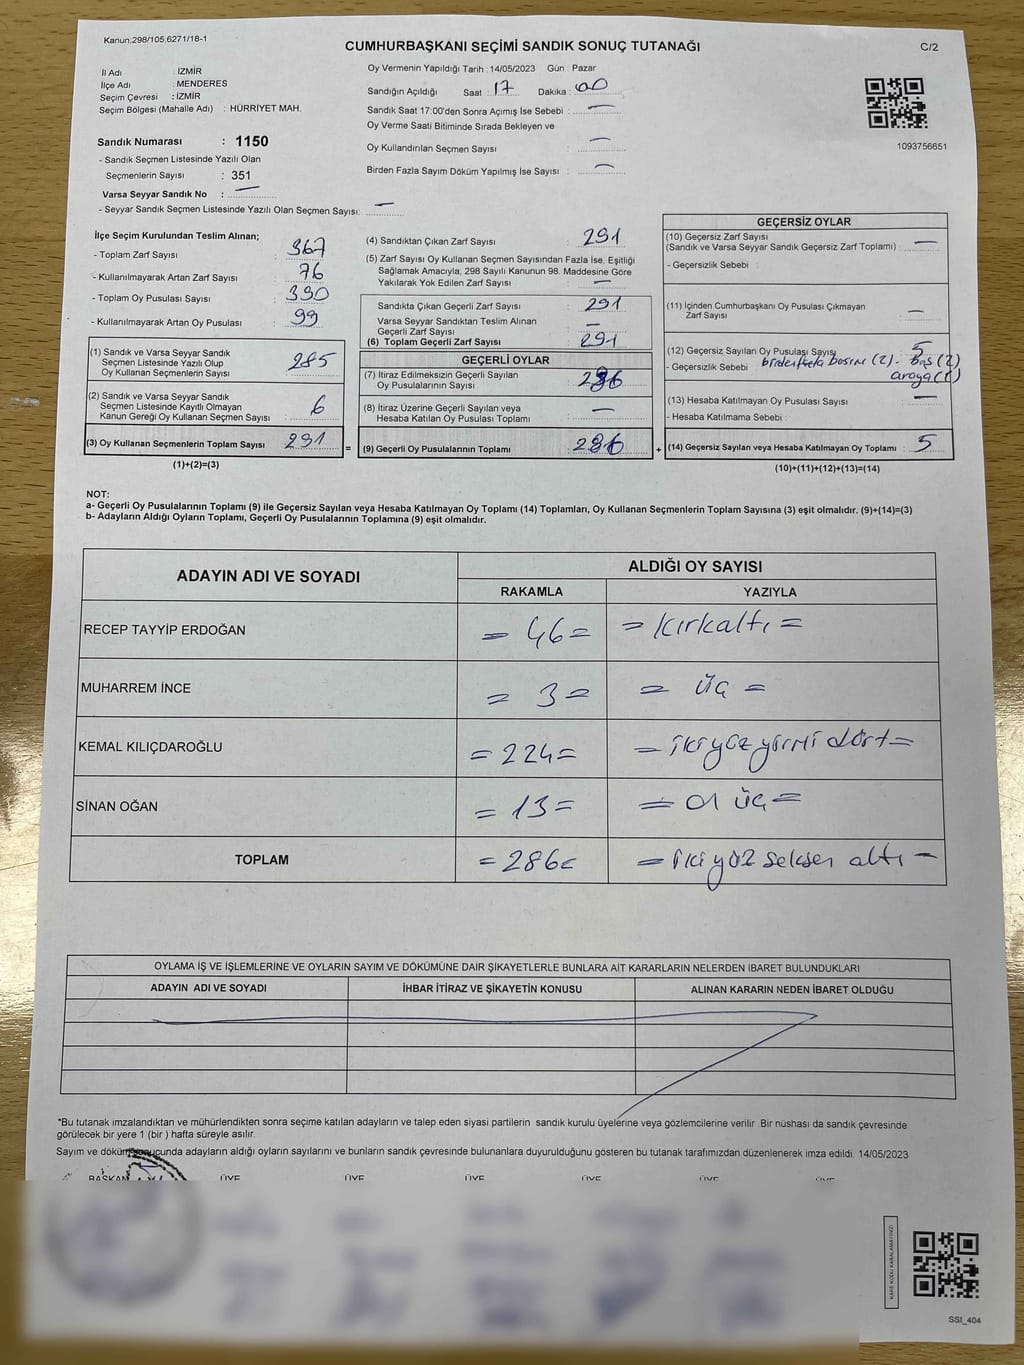 Kanun:298/105,6271/18-1
CUMHURBAŞKANI SEÇİMİ SANDIK SONUÇ TUTANAĞI
C/2
İl Adı : İZMİR
İlçe Adı : MENDERES
Seçim Çevresi : İZMİR
Seçim Bölgesi (Mahalle Adı) : HÜRRİYET MAH.
Sandık Numarası : 1150
- Sandık Seçmen Listesinde Yazılı Olan
Seçmenlerin Sayısı : 351
Varsa Seyyar Sandık No : —
- Seyyar Sandık Seçmen Listesinde Yazılı Olan Seçmen Sayısı: —
Oy Vermenin Yapıldığı Tarih : 14/05/2023 Gün : Pazar
Sandığın Açıldığı Saat : 17 Dakika : 00
Sandık Saat 17:00'den Sonra Açımış İse Sebebi : —
Oy Verme Saati Bitiminde Sırada Bekleyen ve
Oy Kullandırılan Seçmen Sayısı : —
Birden Fazla Sayım Döküm Yapılmış İse Sayısı : —
1093756651
İlçe Seçim Kurulundan Teslim Alınan;
- Toplam Zarf Sayısı : 367
- Kullanılmayarak Artan Zarf Sayısı : 76
- Toplam Oy Pusulası Sayısı : 390
- Kullanılmayarak Artan Oy Pusulası : 99
(1) Sandık ve Varsa Seyyar Sandık
Seçmen Listesinde Yazılı Olup
Oy Kullanan Seçmenlerin Sayısı : 285
(2) Sandık ve Varsa Seyyar Sandık
Seçmen Listesinde Kayıtlı Olmayan
Kanun Gereği Oy Kullanan Seçmen Sayısı : 6
(3) Oy Kullanan Seçmenlerin Toplam Sayısı : 291 =
(1)+(2)=(3)
(4) Sandıktan Çıkan Zarf Sayısı : 291
(5) Zarf Sayısı Oy Kullanan Seçmen Sayısından Fazla İse, Eşitliği
Sağlamak Amacıyla; 298 Sayılı Kanunun 98. Maddesine Göre
Yakılarak Yok Edilen Zarf Sayısı : —
Sandıkta Çıkan Geçerli Zarf Sayısı : 291
Varsa Seyyar Sandıktan Teslim Alınan
Geçerli Zarf Sayısı : —
(6) Toplam Geçerli Zarf Sayısı : 291
GEÇERLİ OYLAR
(7) İtiraz Edilmeksizin Geçerli Sayılan
Oy Pusulalarının Sayısı : 286
(8) İtiraz Üzerine Geçerli Sayılan veya
Hesaba Katılan Oy Pusulası Toplamı : —
(9) Geçerli Oy Pusulalarının Toplamı : 286 +
GEÇERSİZ OYLAR
(10) Geçersiz Zarf Sayısı
(Sandık ve Varsa Seyyar Sandık Geçersiz Zarf Toplamı) : —
- Geçersizlik Sebebi :
(11) İçinden Cumhurbaşkanı Oy Pusulası Çıkmayan
Zarf Sayısı : —
(12) Geçersiz Sayılan Oy Pusulası Sayısı 5
- Geçersizlik Sebebi birden fazla basım (2) - Boş (2)
araya (1)
(13) Hesaba Katılmayan Oy Pusulası Sayısı : —
- Hesaba Katılmama Sebebi :
(14) Geçersiz Sayılan veya Hesaba Katılmayan Oy Toplamı : 5
(10)+(11)+(12)+(13)=(14)
NOT:
a- Geçerli Oy Pusulalarının Toplamı (9) ile Geçersiz Sayılan veya Hesaba Katılmayan Oy Toplamı (14) Toplamları, Oy Kullanan Seçmenlerin Toplam Sayısına (3) eşit olmalıdır. (9)+(14)=(3)
b- Adayların Aldığı Oyların Toplamı, Geçerli Oy Pusulalarının Toplamına (9) eşit olmalıdır.
ADAYIN ADI VE SOYADI
ALDIĞI OY SAYISI
RAKAMLA YAZIYLA
RECEP TAYYİP ERDOĞAN = 46 = = Kırkaltı =
MUHARREM İNCE = 3 = = üç =
KEMAL KILIÇDAROĞLU = 224 = = ikiyüz yirmi dört =
SİNAN OĞAN = 13 = = on üç =
TOPLAM = 286 = = ikiyüz seksen altı -
OYLAMA İŞ VE İŞLEMLERİNE VE OYLARIN SAYIM VE DÖKÜMÜNE DAİR ŞİKAYETLERLE BUNLARA AİT KARARLARIN NELERDEN İBARET BULUNDUKLARI
ADAYIN ADI VE SOYADI İHBAR İTİRAZ VE ŞİKAYETİN KONUSU ALINAN KARARIN NEDEN İBARET OLDUĞU
*Bu tutanak imzalandıktan ve mühürlendikten sonra seçime katılan adayların ve talep eden siyasi partilerin sandık kurulu üyelerine veya gözlemcilerine verilir .Bir nüshası da sandık çevresinde
görülecek bir yere 1 (bir ) hafta süreyle asılır.
Sayım ve döküm sonucunda adayların aldığı oyların sayılarını ve bunların sandık çevresinde bulunanlara duyurulduğunu gösteren bu tutanak tarafımızdan düzenlenerek imza edildi. 14/05/2023
BAŞKAN ÜYE ÜYE ÜYE ÜYE ÜYE ÜYE
KARE KODU KARALAMAYINIZ!
SSI_404